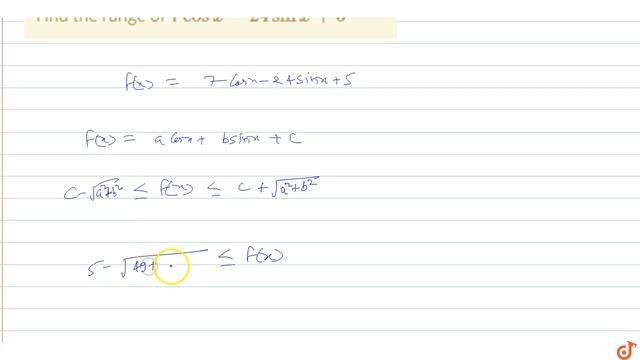 Find the range of 7 cos x − 24 sin x + 5
f(x) = 7 cosx − 24 sinx + 5
f(x) = a cosx + b sinx + c
c − √a²+b² ≤ f(x) ≤ c + √a²+b²
5 − √49+ ≤ f(x)
doubtnut